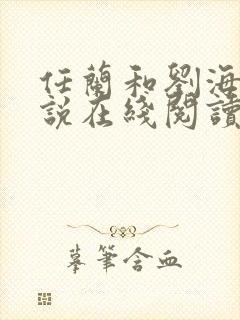 任蘭和劉海
說在綫閱讀
摹筆含血